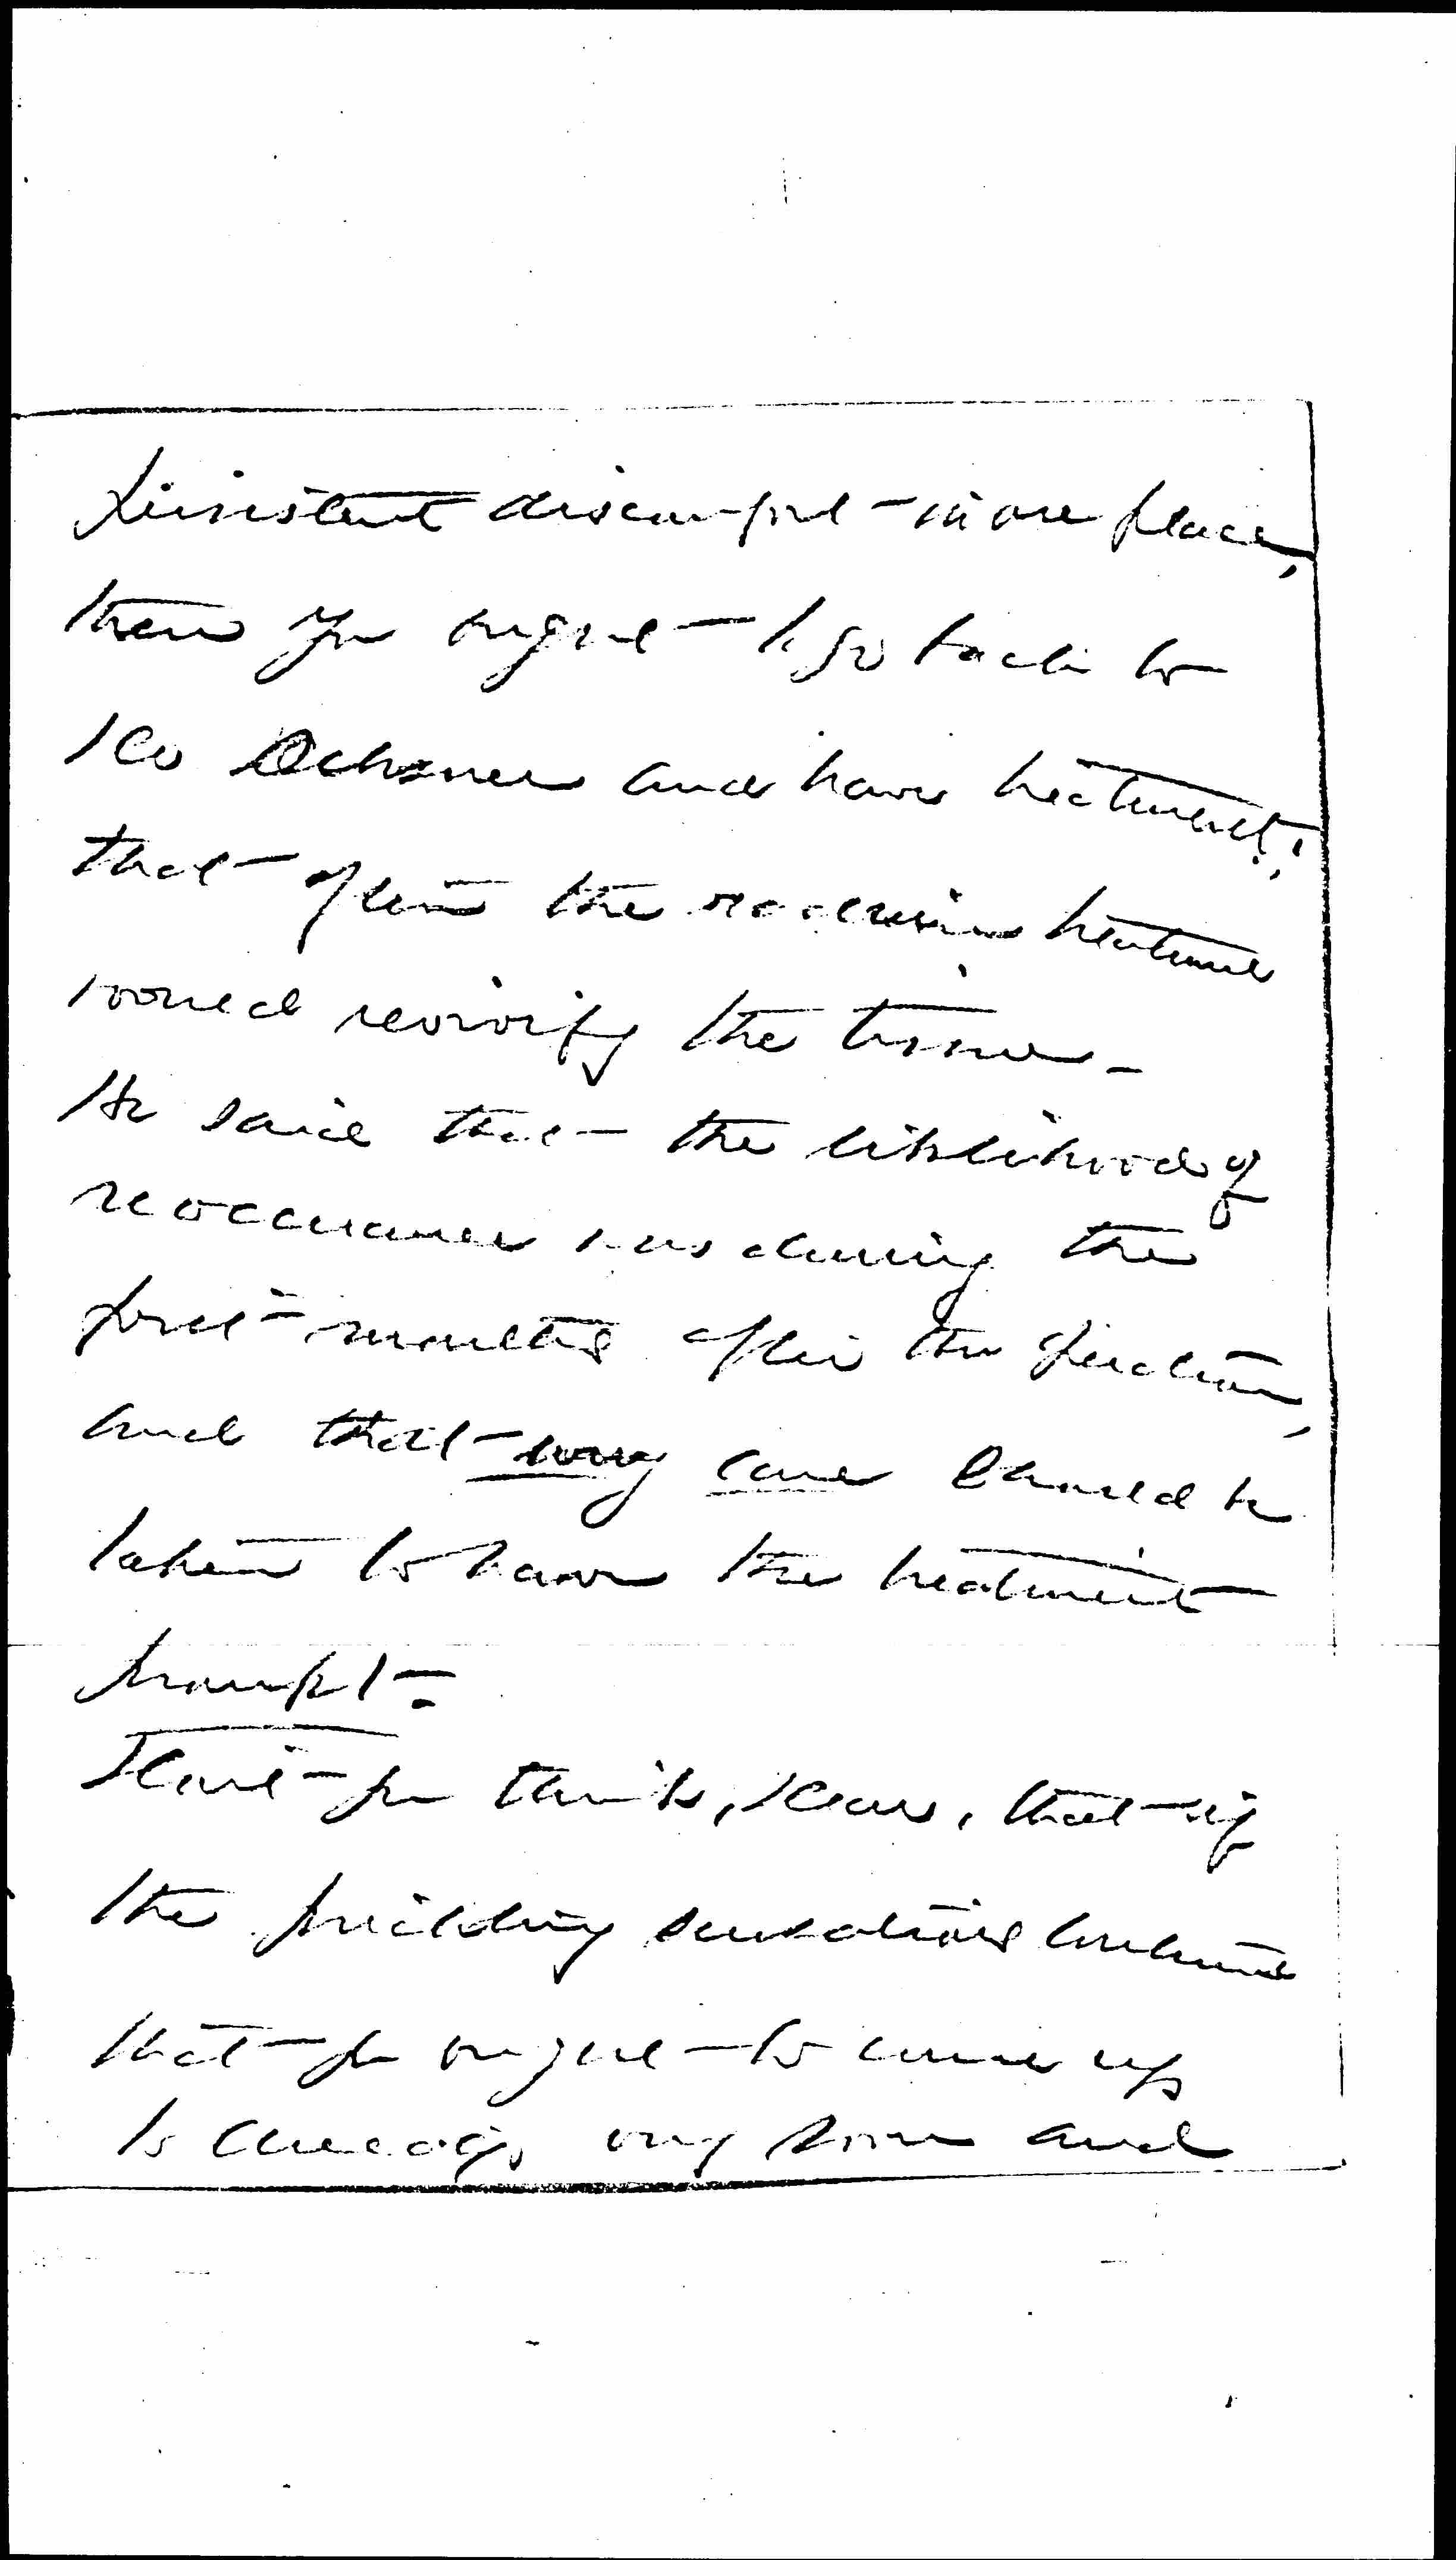 persistent discomfort in one place,
then you ought to go back to
Dr Ochsner and have treatment;
that often the radium treatment
would revivify the tissue -
He said that the liklihood of
reoccurance was during the
first months after the operation,
and that very care should be
taken to have the treatment
prompt.
Don't you think, dear, that if
the prickling sensations continue
that you ought to come up
to Chicago very soon and